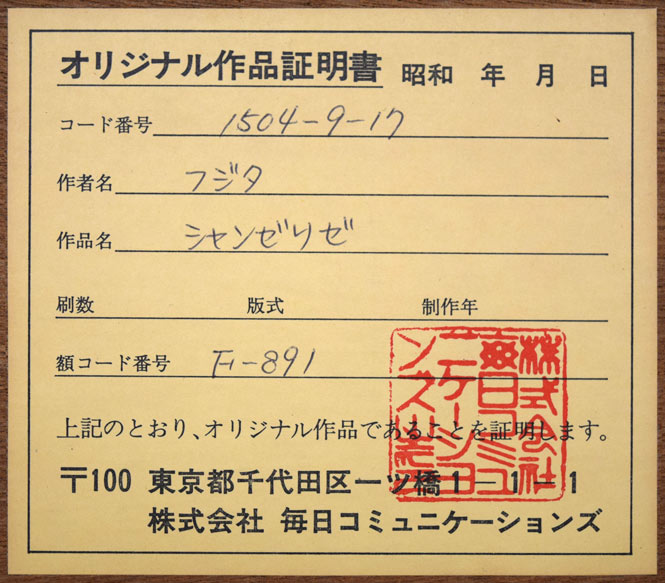 オリジナル作品証明書 昭和 年 月 日
コード番号 1504-9-17
作者名 フジタ
作品名 シャンゼリゼ
刷数 版式 制作年
額コード番号 F1-891
上記のとおり、オリジナル作品であることを証明します。
〒100 東京都千代田区一ツ橋1-1-1
株式会社 毎日コミュニケーションズ